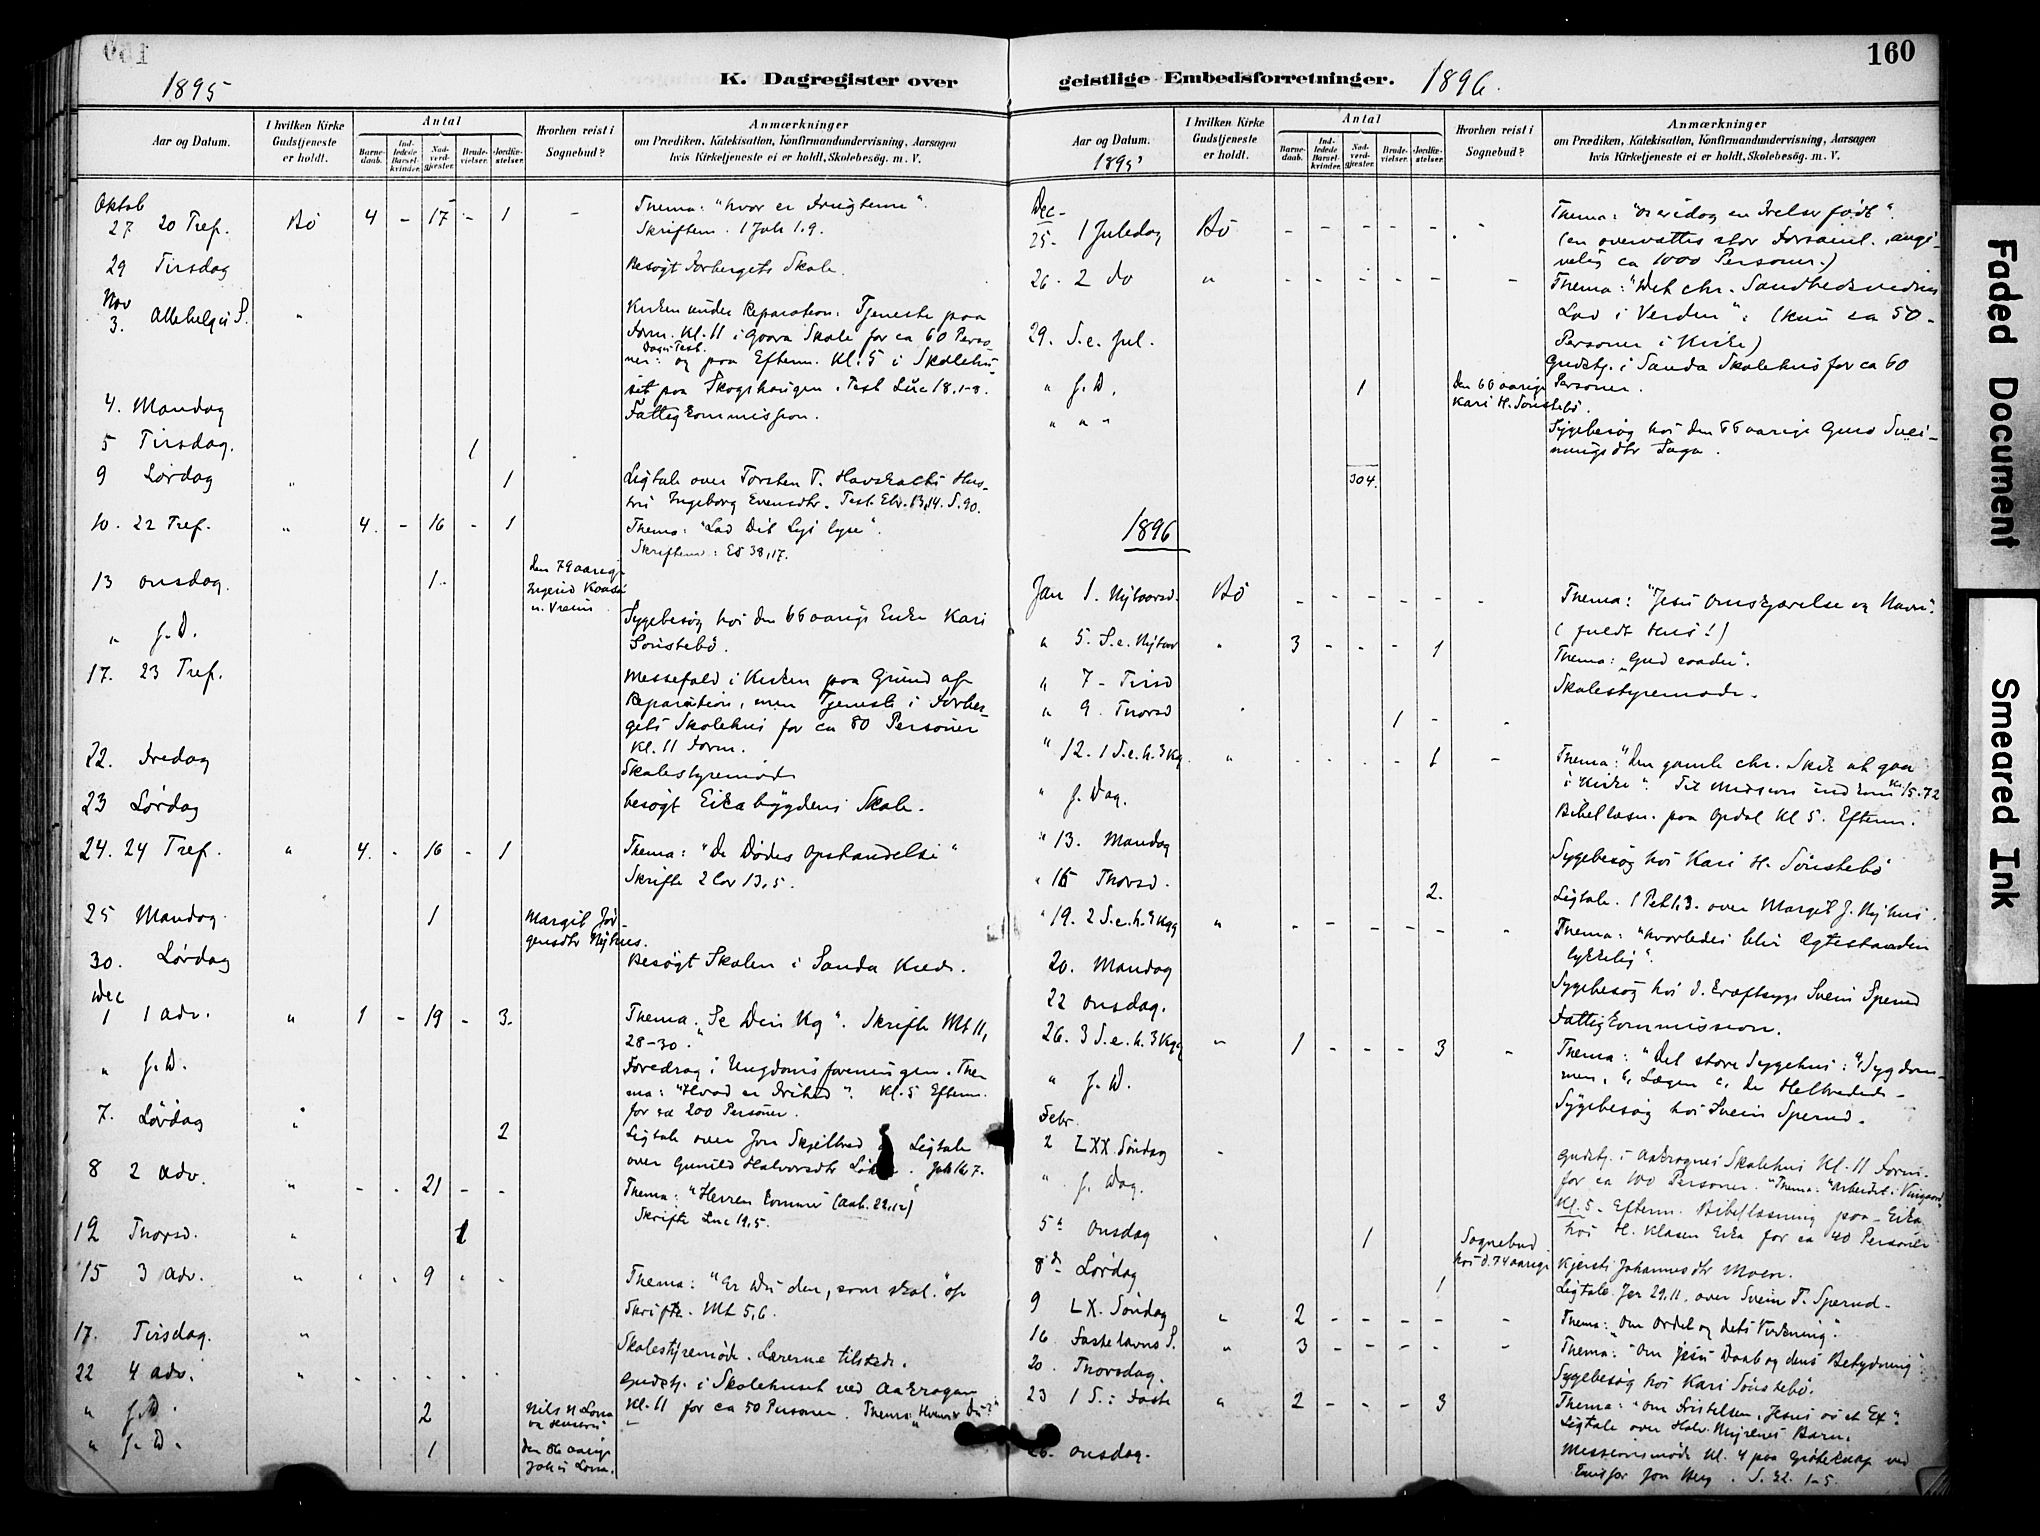 160
1895
K. Dagregister over
I hvilken Kirke
Gudstjeneste
er holdt.
Aar og Datum.
Antal
Barne-
daab.
Ind-
ledede
Barsel-
kvinder.
Nad-
verd-
gjester.
Brude-
vielser.
Jordfæ-
stelser.
Hvorhen reist i
Sognebud?
Anmærkninger
om Prædiken, Katekisation, Konfirmandundervisning, Aarsagen
hvis Kirketjeneste ei er holdt, Skolebesøg. m. V.
Oktob
27 20 Tref. Bø 4 - 17 - 1 -
Thema: "hvor er Frugterne".
Skriftem. 1 Joh 1.9.
29 Tirsdag
Besøgt Forbergets Skole.
Nov
3. Allehelgei S. "
Kirken under Reparation: Tjeneste paa
Form. Kl. 11 i Gaara Skole for ca 60 Perso-
ner: og paa Efterm. Kl. 5 i Skolehu-
set paa Skogshaugen. Text Luc 18.1-8.
4. Mandag
Fattigkommission.
5 Tirsdag. 1
9 Lørdag " 1
Ligtale over Torsten T. Havskaltei Hus-
tru Ingeborg Evensdtr. Text Ebr. 13,14. S. 90.
10. 22 Tref. " 4. - 16 - 1
Thema: "Lad Dit Lys lyse".
Skriftem: Es 38,17.
13 onsdag. 1.
den 79 aarige
Ingerid
" s. D.
Sygebesøg hos den 66 aarige Enke Kari
Sønstebø.
17. 23 Tref.
Messefald i Kirken paa Grund af
Reparation, men Tjeneste i Forber-
gets Skolehus for ca 80 Personer
Kl. 11 Form.
22. Fredag
Skolestyremøde
23 Lørdag
besøgt Eikabygdens Skole.
24. 24 Tref. " 4. - 16 - 1
Thema: "De Dødes Opstandelse"
Skrifte 2 Cor 13,5.
25 Mandag. 1
Margit Jør-
gensdtr Nyhus.
30. Lørdag
Besøgt Skolen i Sanda Kreds.
Dec
1 1 adv. " 1 - 19 - 3.
Thema. "Se Din Kg". Skrifte Mt 11,
28-30.
" s. D.
Foredrag i Ungdomsforeningen. The-
ma: "Hvad er Frihed". Kl. 5 Efterm.
for ca 200 Personer.
7. Lørdag " 2
Ligtale over Jon Skjelbred Ligtale
over Gunild Halvorsdtr
8 2 adv. " - - 21 - -
Thema: "Herren kommer (Aab. 22,12)
Skrifte Luc 19,5.
12 Thorsd. " 1
15 3 adv. " - - 9 - -
Thema: "Er Du den, som skal." og
Skrifte. Mt 5,6.
17. Tirsdag. "
Skolestyremøde. Lærerne tilstede.
22 4 adv. " - - - - -
Gudstj. i Skolehuset ved Aakragen
Kl. 11 for ca 50 Personer. Thema: "Hvem er Du?"
" s. D. 2
Nils N Lona
og Hustru
" s. D. 1
den 86 aarige
Lona.
geistlige Embedsforretninger. 1896.
Aar og Datum.
1895
I hvilken Kirke
Gudstjeneste
er holdt.
Antal
Barne-
daab.
Ind-
ledede
Barsel-
kvinder.
Nad-
verd-
gjester.
Brude-
vielser.
Jordfæ-
stelser.
Hvorhen reist i
Sognebud?
Anmærkninger
om Prædiken, Katekisation, Konfirmandundervisning, Aarsagen
hvis Kirketjeneste ei er holdt, Skolebesøg. m. V.
Dec-
25- 1 Juledag Bø - - - - - -
Thema: "Os er idag en Frelser født".
(en overvættes stor Forsaml. angi-
velig ca 1000 Personer.)
26. 2 do " - - - - - -
Thema: "Det chr. Sandhedsvidnes
Lod i Verden": (kun ca 50-
Personer i Kirke)
29. S. e. Jul.
Gudstj. i Sanda Skolehus for ca 60
Personer.
" s. D. 1
den 66 aarige
Kari H. Sønstebø.
" " "
Sygebesøg hos den 66 aarige Guro Svei-
nungsdtr Saga.
304.
1896
Jan 1. Nytaarsd. Bø - - - - - -
Thema: "Jesu Omskjærelse og Navn".
(fuldt Hus!)
" 5. S. e. Nytaar " 3 - - - 1
Thema: "Gud raader".
" 7 - Tirsd
Skolestyremøde.
" 9. Thorsd " 1 - -
" 12. 1 S. e. h. 3 Kg. " - - - - 1 -
Thema: "Den gamle chr. Skik at gaa
i Kirke". Til Missions indkom Kr 15.72
" s. Dag.
Bibellæsn. paa Opdal Kl 5. Efterm.
" 13. Mandag
Sygebesøg hos Kari H. Sønstebø
" 16 Thorsd. 2.
Ligtale. 1 Pet 1.3. over Margit J. Nyhus.
" 19. 2 S. e. h. 3 Kgg " - - - - - -
Thema: "hvorledes blir Ægtestanden
lykkelig".
20. Mandag
Sygebesøg hos d. kræftsyge Svein Sperud
22 onsdag.
Fattigkommission.
26. 3 S. e. h. 3 Kgg " 1 - - - 3 -
Thema: "Det store Sygehus: a, Sygdom-
men, b, Lægen c, De Helbredede -
" s. D.
Sygebesøg hos Svein Sperud.
Febr.
2 LXX Søndag -
Gudstj. i Aakragnes Skolehus Kl. 11 Form.
for ca 100 Personer. "Thema: "Arbeidet i Vingaard"
" s. Dag.
Kl. 5 - Efterm. Bibellæsning paa - Eika
hos H. Klasen Eika for ca 40 Personer
5te onsdag " 1
Sognebud
hos d. 74 aarige
Kjersti Johannesdtr Moen.
8de Lørdag 1
Ligtale Jer 29.11. over Svein T. Sperud.
9 LX. Søndag " 2 - - - - -
Thema: "om Ordet og dets Virkning".
16. Fastelavns S. " 3 - - - - -
Thema: "Om Jesu Daab og dens Betydning"
20. Thorsdag.
Sygebesøg hos Kari Sønstebø.
23 1 S. i Faste " 2 - - - 3
Thema: "om Fristelsen, Jesus os et Ex".
Ligtale over Halv. Myrenes Barn.
26. onsdag.
Missionsmøde Kl. 4 paa Grøtekaas ved
Emissær Jon Berg. S. 32. 1-5.
Faded Document
Smeared Ink